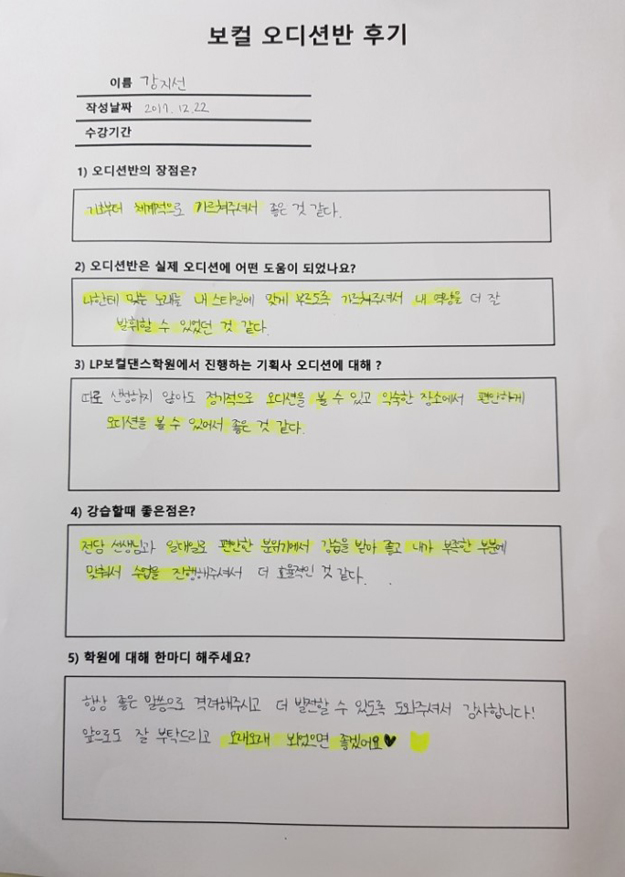 보컬 오디션반 후기
이름 강지선
작성날짜 2017. 12. 22
수강기간
1) 오디션반의 장점은?
기초부터 체계적으로 기르쳐주셔서 좋은 것 같다.
2) 오디션반은 실제 오디션에 어떤 도움이 되었나요?
나한테 맞는 노래를 내 스타일에 맞게 부르도록 기르쳐주셔서 내 역량을 더 잘
발휘할 수 있었던 것 같다.
3) LP보컬댄스학원에서 진행하는 기획사 오디션에 대해 ?
따로 신청하지 않아도 정기적으로 오디션을 볼 수 있고 익숙한 장소에서 편안하게
오디션을 볼 수 있어서 좋은 것 같다.
4) 강습할때 좋은점은?
전담 선생님과 일대일로 편안한 분위기에서 강습을 받아 좋고 내가 부족한 부분에
맞춰서 수업을 진행해주셔서 더 효율적인 것 같다.
5) 학원에 대해 한마디 해주세요?
항상 좋은 말씀으로 격려해주시고 더 발전할 수 있도록 도와주셔서 감사합니다!
앞으로도 잘 부탁드리고 오래오래 뵈었으면 좋겠어요♥